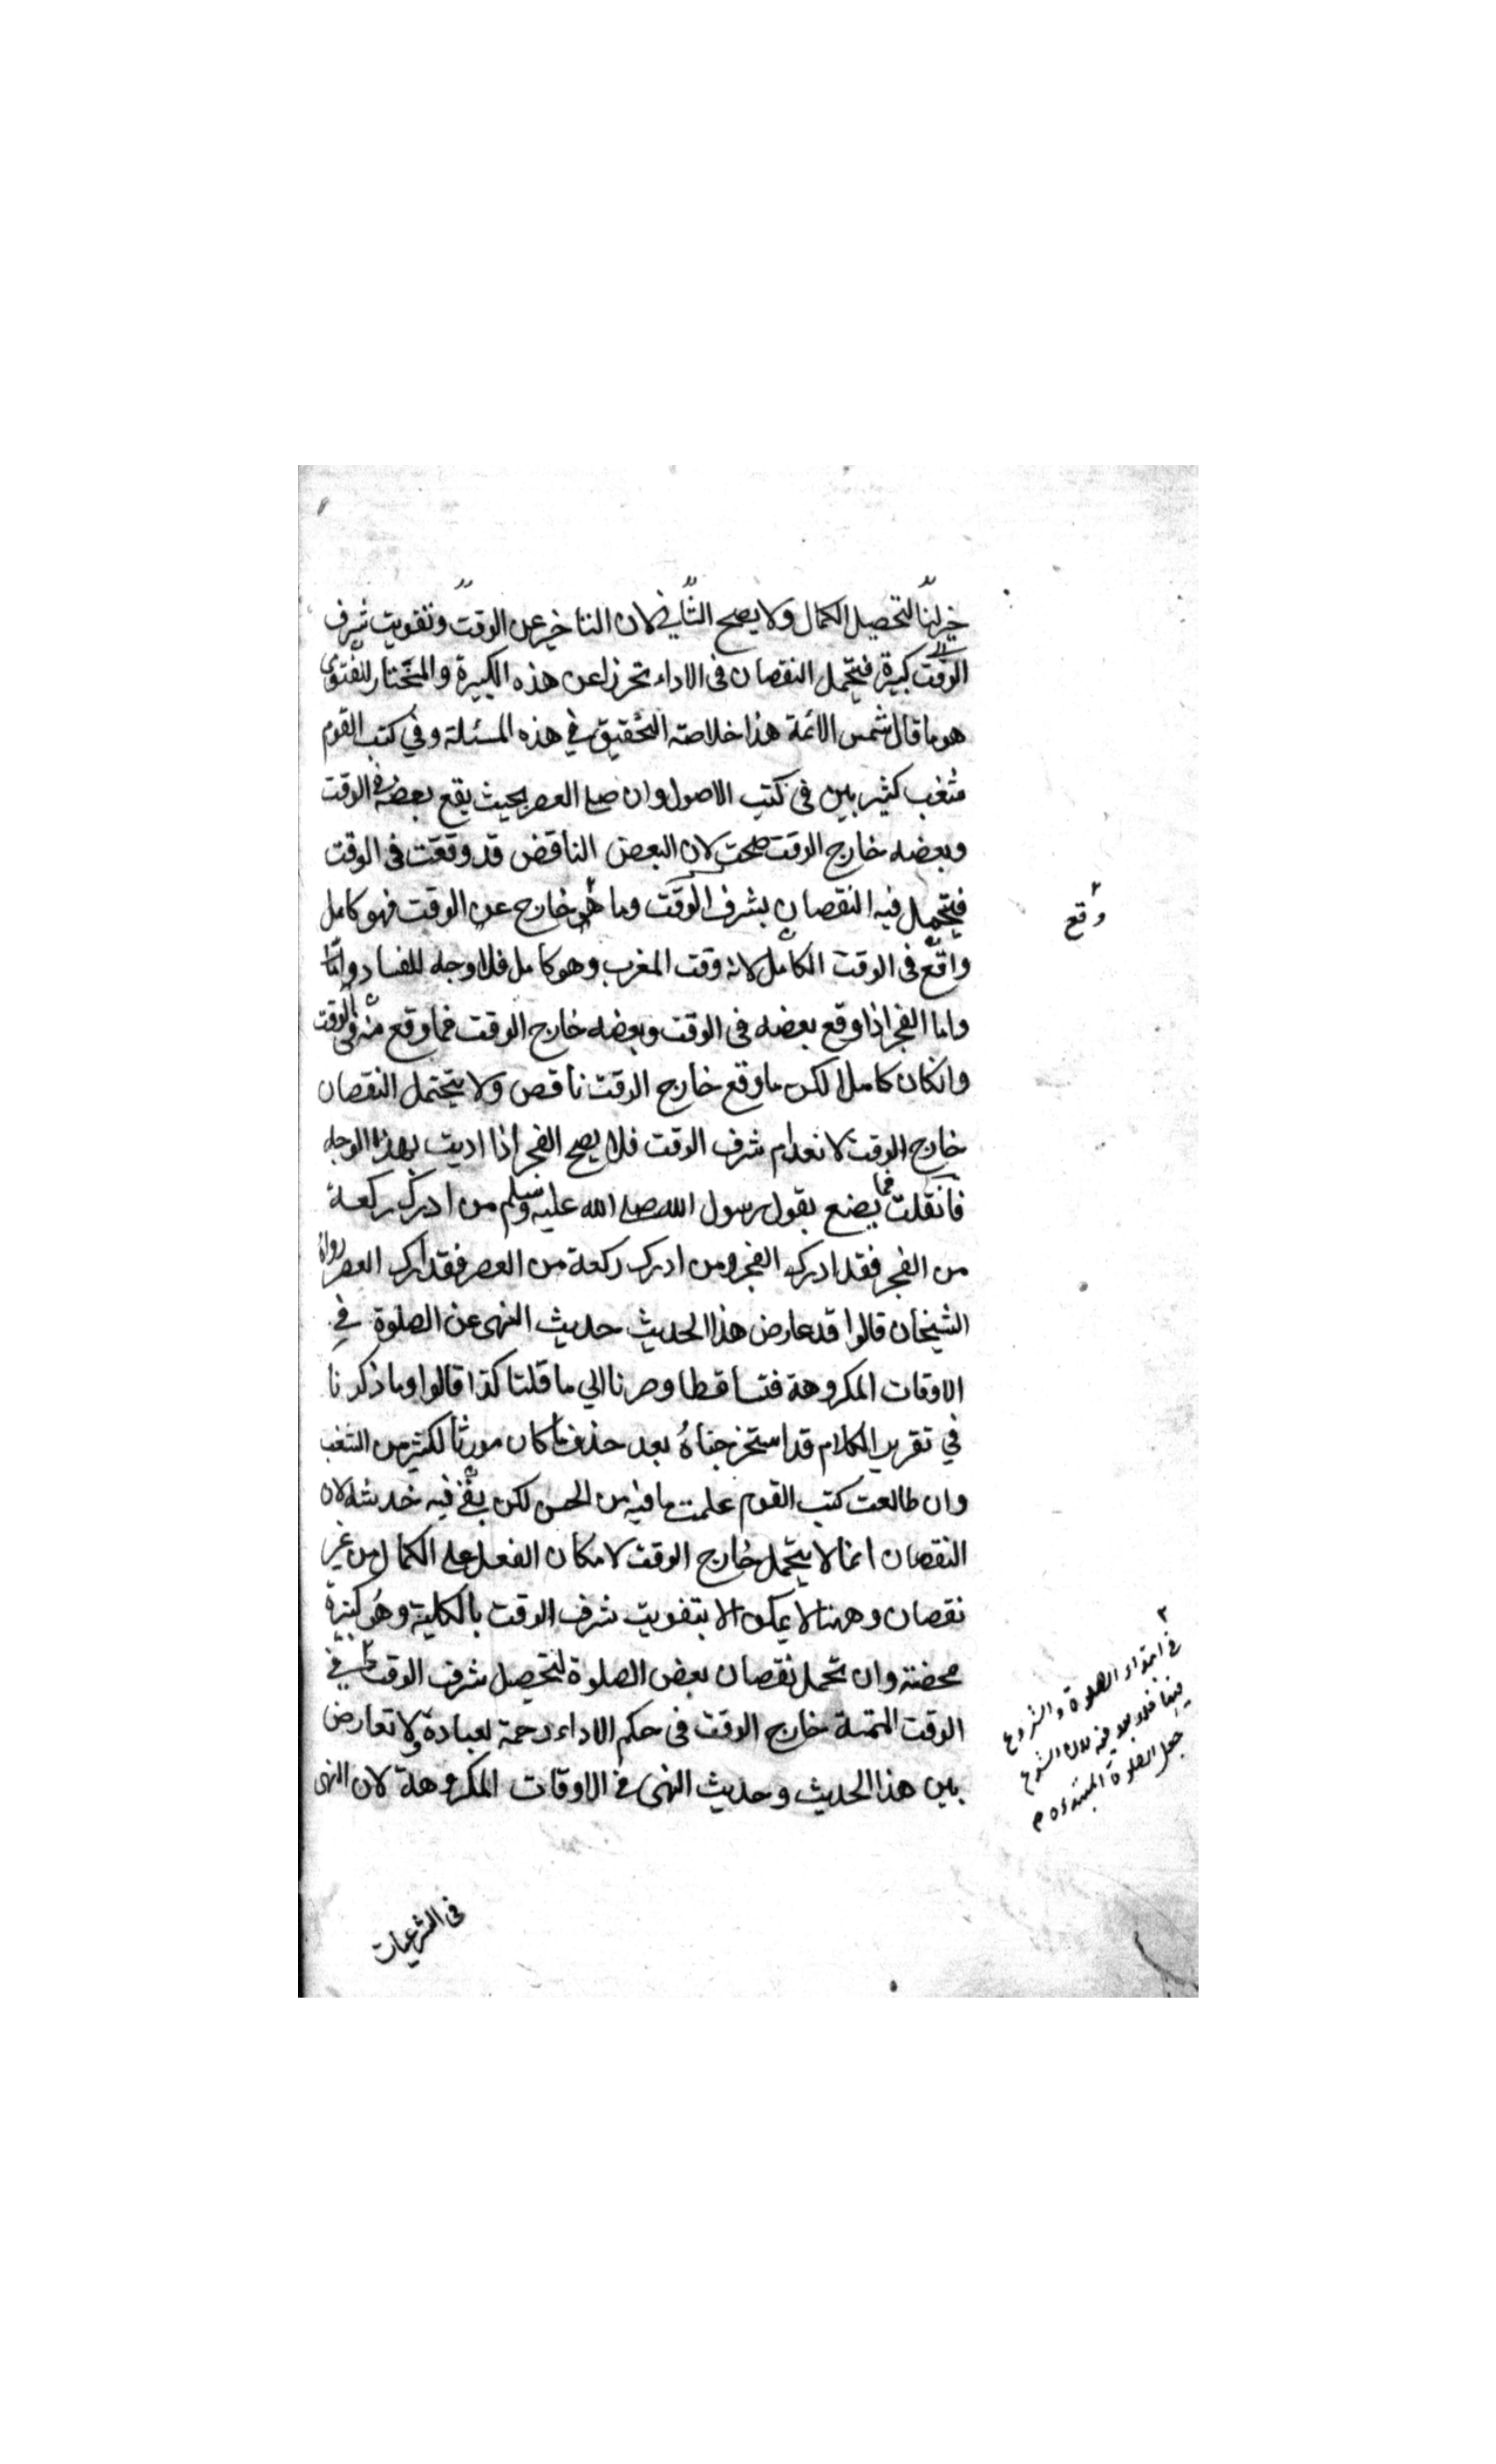 خيرلنا لتحصيل الكمال ولا يصح الثاني لان التاخير عن الوقت وتفويت شرف
الوقت كبيرة فيتحمل النقصان فى الاداء تحرزا عن هذه الكبيرة والمختار للفتوى
هو ما قال شمس الائمة هذا خلاصة التحقيق في هذه المسئلة وفي كتب القوم
شغب كثير بين فى كتب الاصول وان صلى العصر بحيث يقع بعضه فى الوقت
وبعضه خارج الوقت صحت لان البعض الناقض قد وقعت فى الوقت
فيتحمل فيه النقصان بشرف الوقت وما هو خارج عن الوقت فهو كامل
واقع فى الوقت الكامل لانه وقت المغرب وهو كامل فلا وجه للفساد واما
واما الفجر اذا وقع بعضه فى الوقت وبعضه خارج الوقت فما وقع منه فى الوقت
وانكان كاملا لكن ما وقع خارج الوقت ناقص ولا يتحمل النقصان
خارج الوقت لانعدام شرف الوقت فلا يصح الفجر اذا اديت بهذا الوجه
فانقلت فما يضع بقول رسول الله صلى الله عليه وسلم من ادرك ركعة
من الفجر فقد ادرك الفجر ومن ادرك ركعة من العصر فقد ادرك العصر رواه
الشيخان قالوا قد عارض هذا الحديث حديث النهى عن الصلوة في
الاوقات المكروهة فتساقطا وصرنا الي ما قلنا كذا قالوا وما ذكرنا
في تقرير الكلام قد استخرجناه بعد حذف ما كان مورثا لكثير من الشغب
وان طالعت كتب القوم علمت ما فيه من الحسن لكن بقى فيه خدشة لان
النقصان انما لا يتحمل خارج الوقت لامكان الفعل على الكمال من غير
نقصان وههنا لا يمكن الا بتفويت شرف الوقت بالكلية وهو كبيرة
محضة وان تحمل نقصان بعض الصلوة لتحصيل شرف الوقت في
الوقت المتممة خارج الوقت فى حكم الاداء رحمة لعباده ولا تعارض
بين هذا الحديث وحديث النهى فى الاوقات المكروهة لان النهى
وقع
فى ابتداء الصلوة والشروع
جعل الصلوة المبتدءه
فى الشرعيات